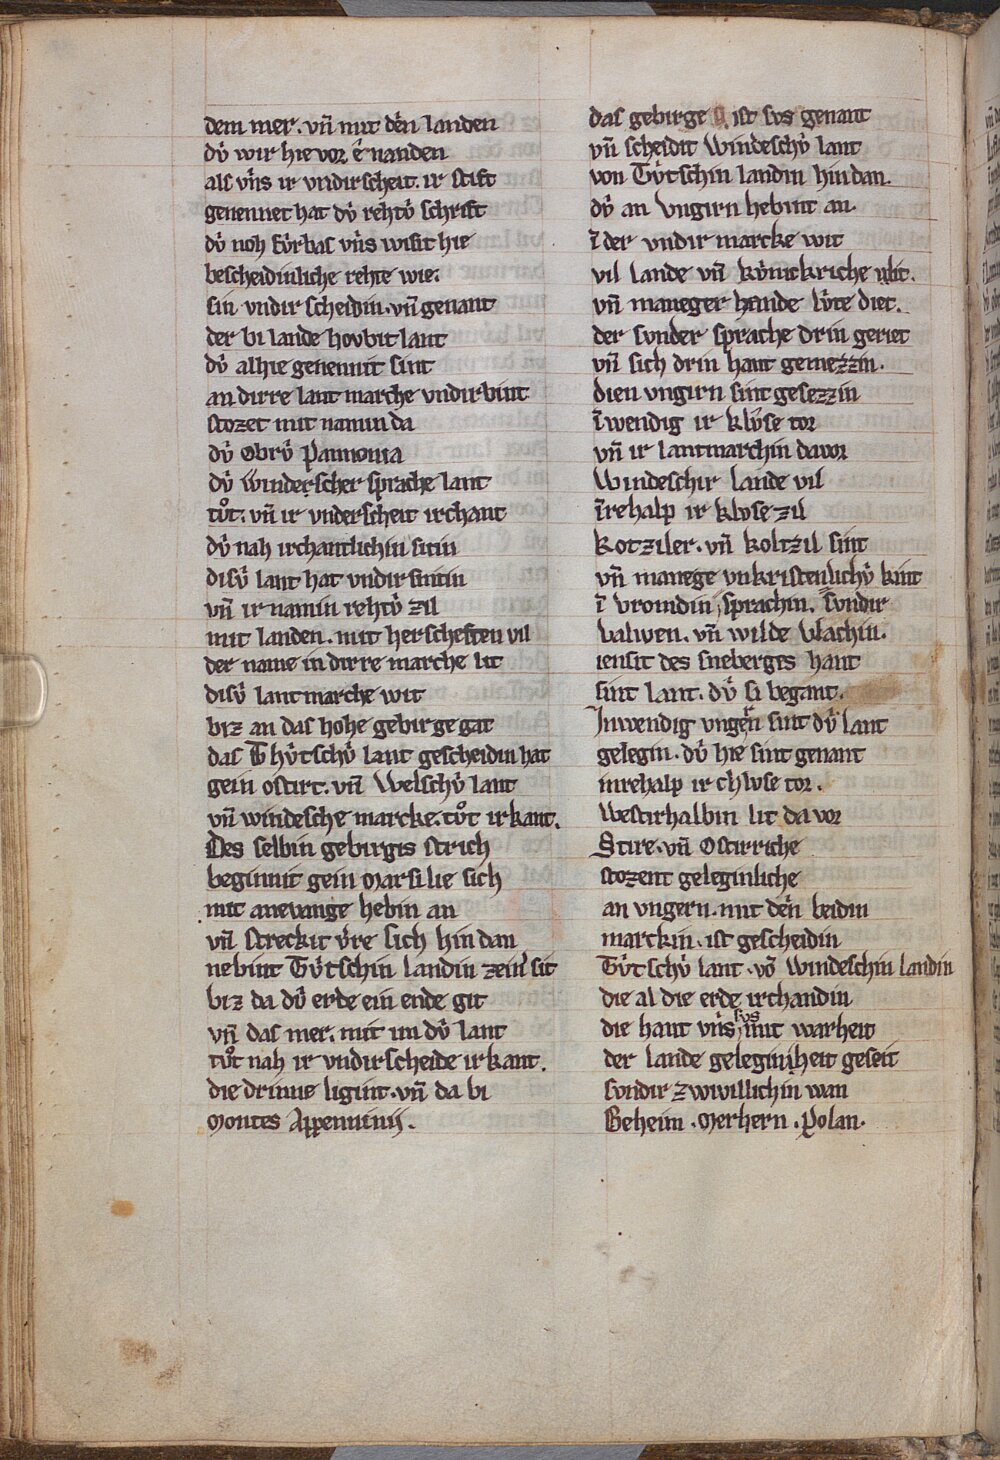 dem mer. vn̄ mit den landen
dv̍ wir hie vor e nanden
als vns ir vndirscheit. ir stift
genennet hat dv̍ rehtv̍ schrift
dv̍ noh fv̍rbas vns wisit hie
bescheidinliche rehte wie.
sin vndir scheidin. vn̄ genant
der bi lande hovbit lant
dv̍ alhie genennit sint
an dirre lant marche vndirbint
stozet mit namin da
dv̍ Obrv̍ Pannonia
dv̍ winderscher sprache lant
tvͦt. vn̄ ir vnderscheit irchant
dv̍ nah irchantlichin sitin
disv̍ lant hat vndirsnitin
vn̄ ir namin rehtv̍ zil
mit landen. mit herscheften vil
der name in dirre marche lit
disv̍ lantmarche wit
biz an das hohe gebirge gat
das Thv̍tschv̍ lant gescheidin hat
gein ostirt. vn̄ Welschv̍ lant
vn̄ windesche marcke. tvͦt irkant.
Des selbin gebirgis strich
beginnit gein Marsilie sich
mit anevange hebin an
vn̄ streckit vv̍re sich hin dan
nebint Tv̍tschin landin zein̍ sit
biz da dv̍ erde ein ende git
vn̄ das mer. mit im dv̍ lant
tvͦt nah ir vndirscheide irkant.
die drinne ligint. vn̄ da bi
Montes Appenninij.
das gebirge ist svs genant
vn̄ scheidit Windeschv̍ lant
von Tv̍tschin landin hin dan.
dv̍ an Vngirn hebint an.
ī der vndir marcke wit
vil lande vn̄ kv̍nickriche lit.
vn̄ maneger hande lv̍te diet.
der svnder sprache drin geriet
vn̄ sich drin hant gemezzin.
dien vngirn sint gesezzin
īwendig ir klv̍se tor
vn̄ ir lantmarchin davor
Windeschir lande vil
īrehalp ir klvse zil
Kotziler. vn̄ koltzil sint
vn̄ manege vnkristenlichv̍ kint
ī vromdin sprachin. svndir
Valwen. vn̄ wilde Vlachin.
iensit des sneberges hant
sint lant. dv̍ si begant.
Inwendig vngern sint dv̍ lant
gelegin. dv̍ hie sint genant
inrehalp ir chlvse tor.
Westirhalbin lit da vor
Stire. vn̄ Ostirriche
stozent geleginliche
an vngern. mit den beidin
marckin. ist gescheidin
Tv̍tschv̍ lant. vō windeschin landin
die al die erde irchandin
die hant vns svs mit warheit
der lande geleginheit geseit
svndir zwivillichin wan
Beheim. Merhern. Polan.